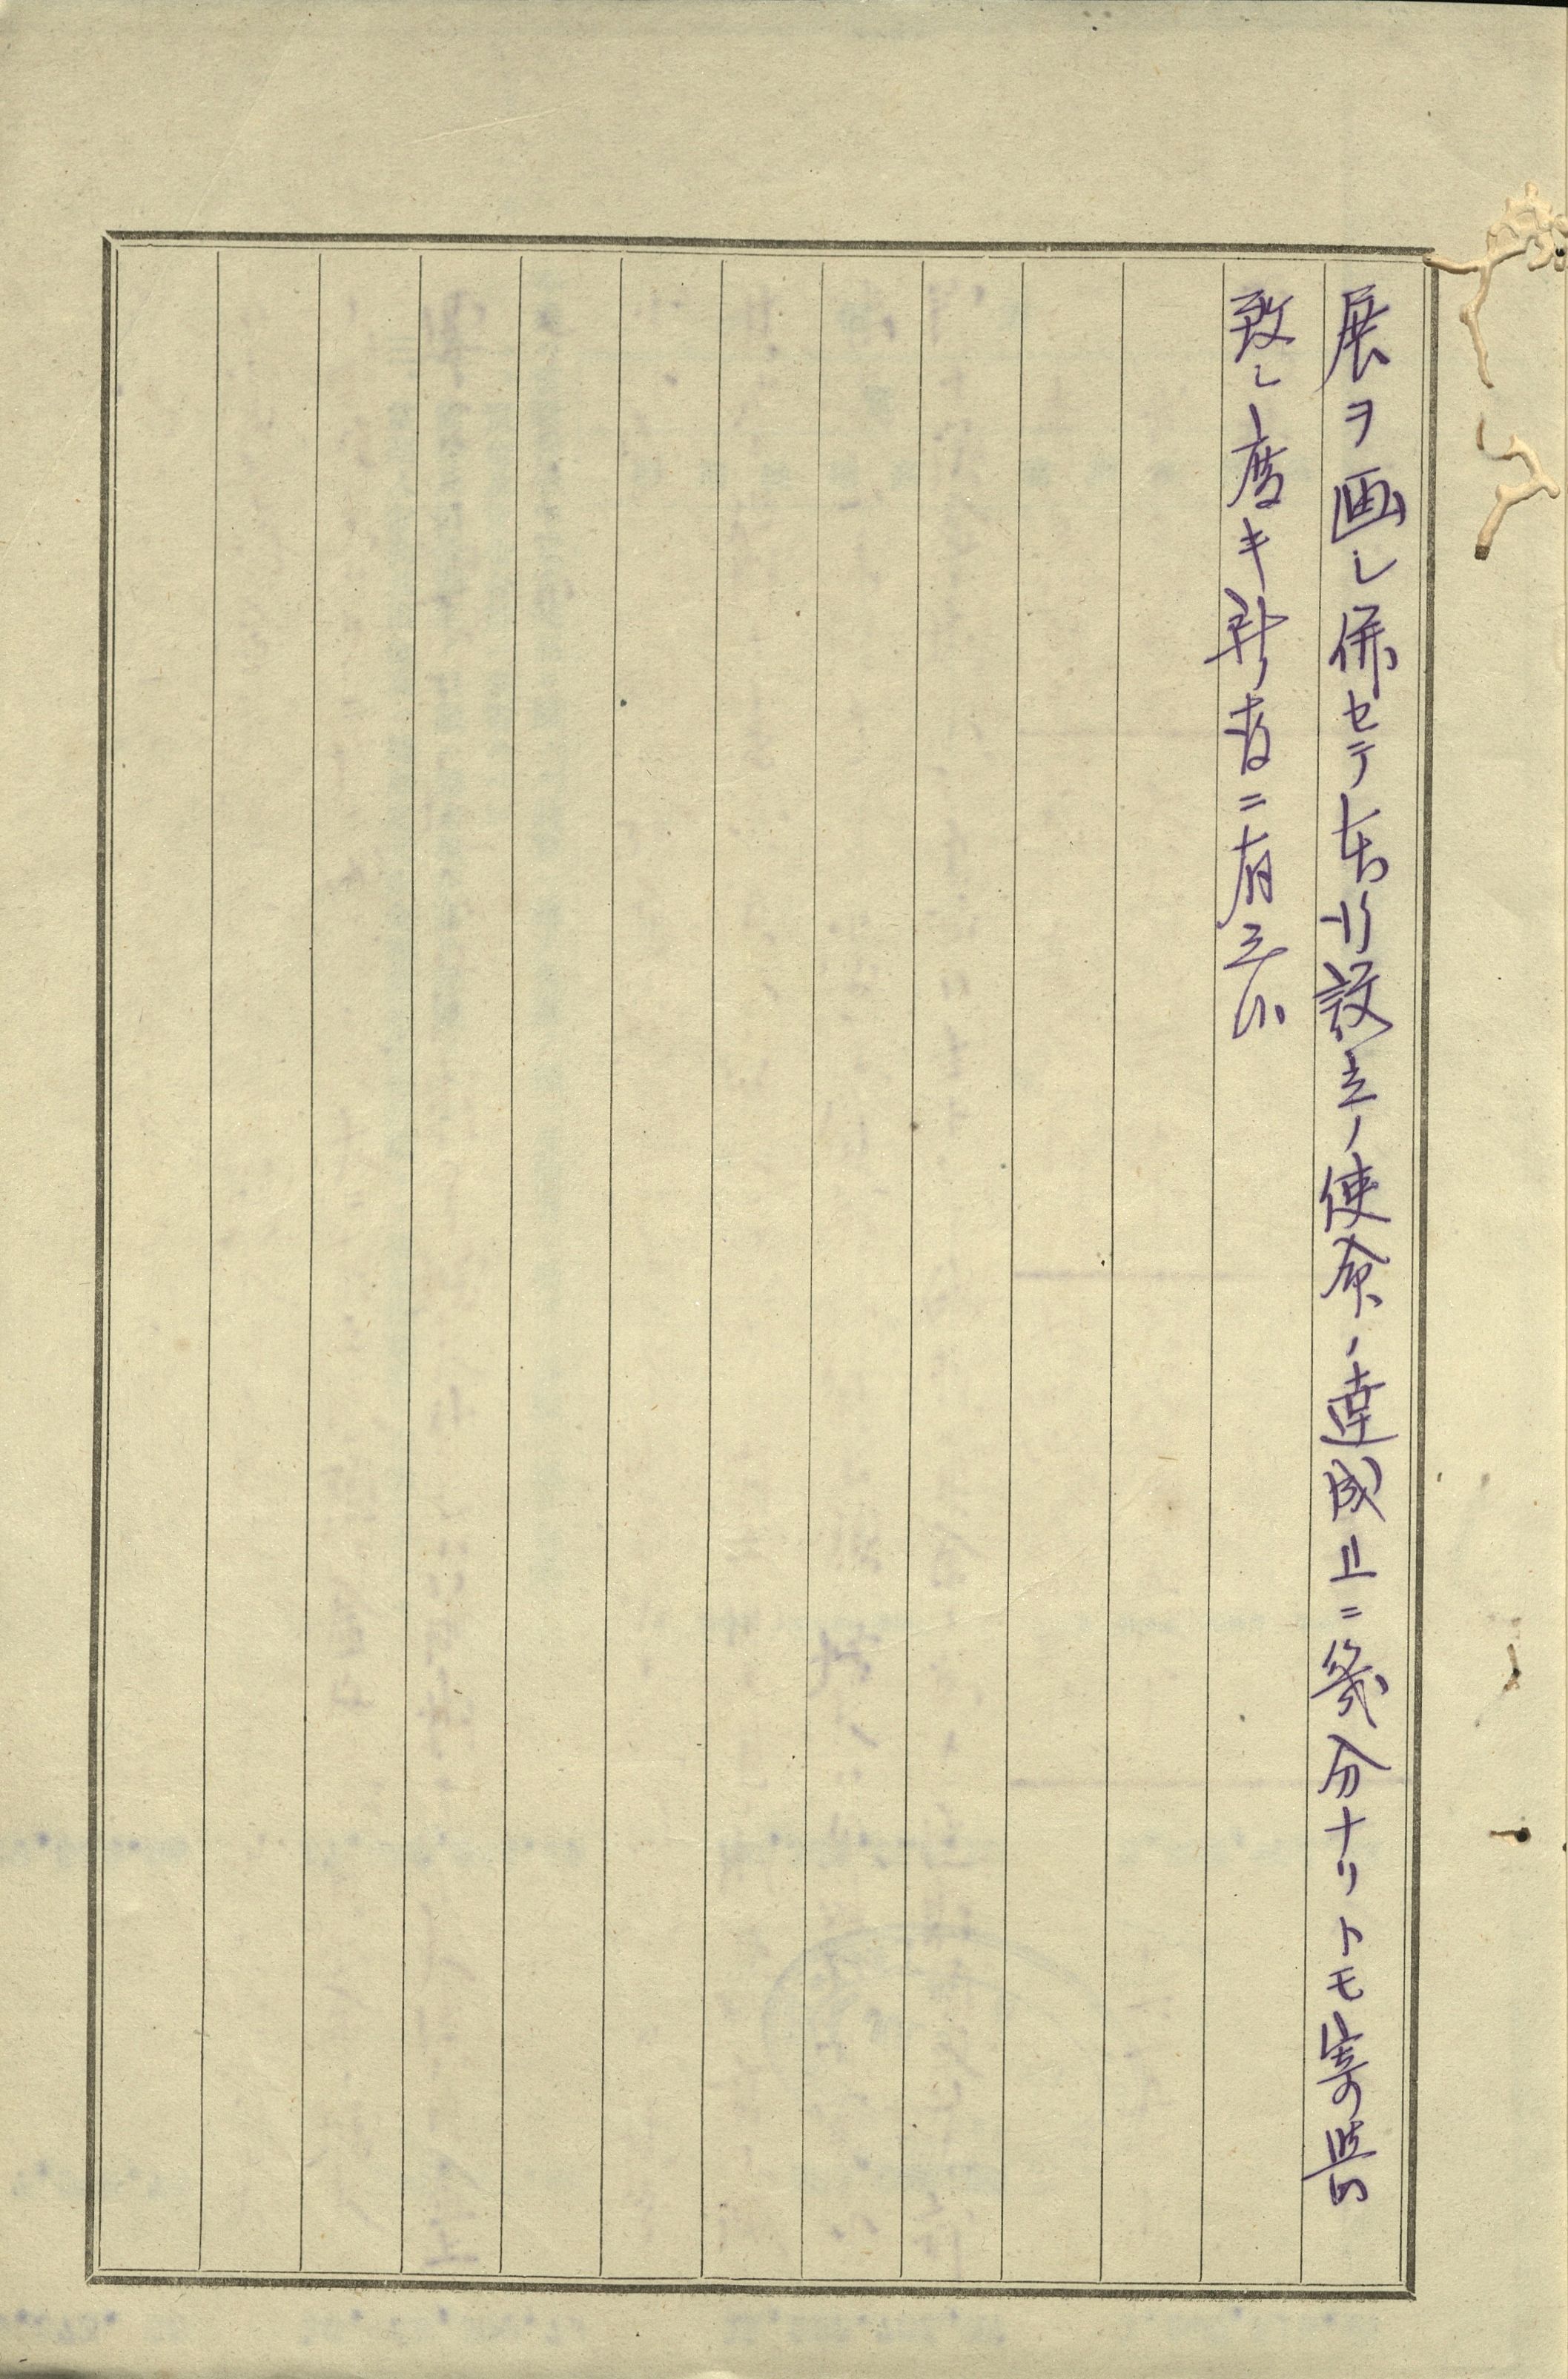 展ヲ画シ併セテ本行設立ノ使命ノ達成上ニ幾分ナリトモ寄與
致シ度キ所存ニ有之候